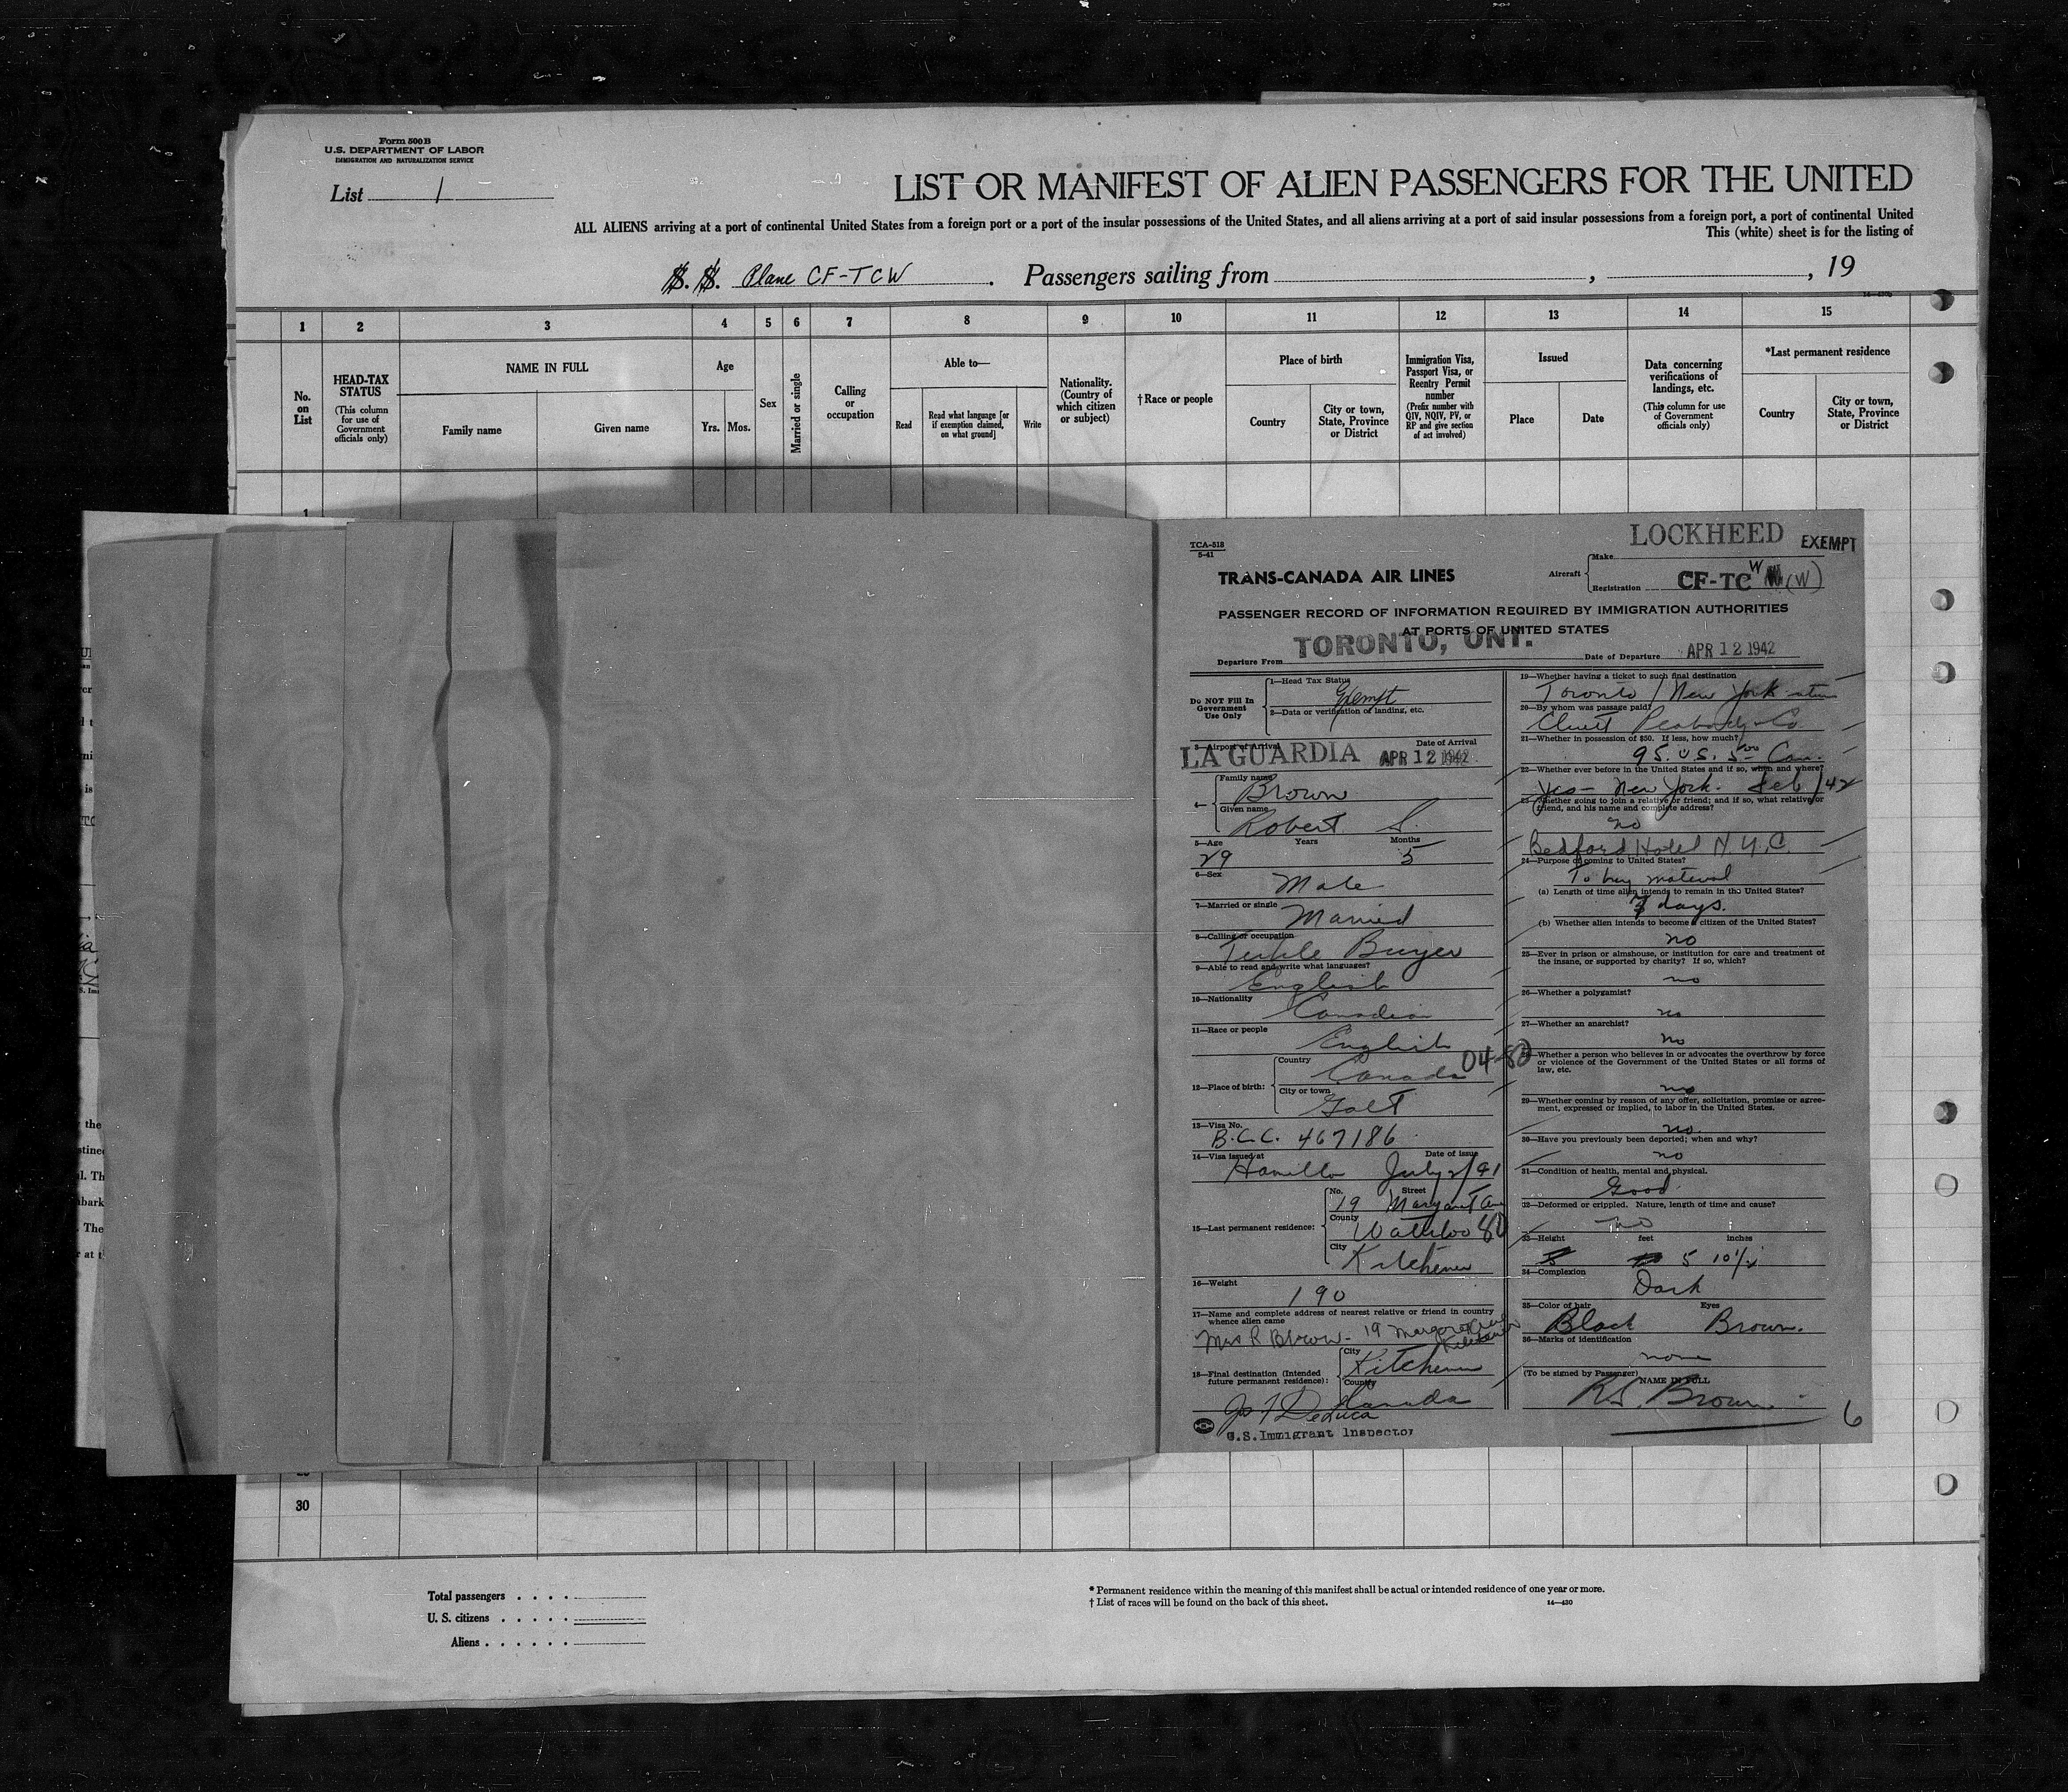 Form 500 B
U.S. DEPARTMENT OF LABOR
IMMIGRATION AND NATURALIZATION SERVICE
List 1
LIST OR MANIFEST OF ALIEN PASSENGERS FOR THE UNITED
ALL ALIENS arriving at a port of continental United States from a foreign port or a port of the insular possessions of the United States, and all aliens arriving at a port of said insular possessions from a foreign port, a port of continental United
This (white) sheet is for the listing of
S. S. Plane CF-TCW. Passengers sailing from , , 19
1 2 3 4 5 6 7 8 9 10 11 12 13 14 15
No. on List
HEAD-TAX STATUS
(This column for use of Government officials only)
NAME IN FULL
Family name Given name
Age
Yrs. Mos.
Sex
Married or single
Calling or occupation
Able to—
Read
Read what language [or if exemption claimed, on what ground]
Write
Nationality. (Country of which citizen or subject)
† Race or people
Place of birth
Country
City or town, State, Province or District
Immigration Visa, Passport Visa, or Reentry Permit number
(Prefix number with QIV, NQIV, PV, or RP and give section of act involved)
Issued
Place Date
Data concerning verifications of landings, etc.
(This column for use of Government officials only)
*Last permanent residence
Country
City or town, State, Province or District
1
TCA-518
5-41
TRANS-CANADA AIR LINES
LOCKHEED EXEMPT
Aircraft
Make
Registration CF-TC W (W)
PASSENGER RECORD OF INFORMATION REQUIRED BY IMMIGRATION AUTHORITIES
AT PORTS OF UNITED STATES
Departure From TORONTO, ONT. Date of Departure APR 12 1942
Do NOT Fill In Government Use Only
1—Head Tax Status
Exempt
2—Data or verification of landing, etc.
3—Airport of Arrival Date of Arrival
LA GUARDIA APR 12 1942
4—
Family name
Brown
Given name
Robert S.
5—Age Years Months
29 5
6—Sex
Male
7—Married or single
Married
8—Calling or occupation
Textile Buyer
9—Able to read and write what languages?
English
10—Nationality
Canadian
11—Race or people
English
12—Place of birth:
Country
Canada 04-80
City or town
Galt
13—Visa No.
B.C.C. 467186
14—Visa issued at Date of issue
Hamilton July 2/41
15—Last permanent residence:
No. Street
19 Margaret Ave
County
Waterloo 80
City
Kitchener
16—Weight
190
17—Name and complete address of nearest relative or friend in country
whence alien came
Mrs R Brown - 19 Margaret Ave Kitchener
18—Final destination (Intended future permanent residence):
City
Kitchener
Country
Canada
Jos F DeLuca
U.S. Immigrant Inspector
19—Whether having a ticket to such final destination
Toronto / New York return
20—By whom was passage paid?
Cluett Peabody & Co.
21—Whether in possession of $50. If less, how much?
95. U.S. 5.00 Can.
22—Whether ever before in the United States and if so, when and where?
Yes - New York. Feb/42
23—Whether going to join a relative or friend; and if so, what relative or
friend, and his name and complete address?
no
Bedford Hotel N.Y.C.
24—Purpose of coming to United States?
To buy material
(a) Length of time alien intends to remain in the United States?
days.
(b) Whether alien intends to become a citizen of the United States?
no
25—Ever in prison or almshouse, or institution for care and treatment of
the insane, or supported by charity? If so, which?
no
26—Whether a polygamist?
no
27—Whether an anarchist?
no
28—Whether a person who believes in or advocates the overthrow by force
or violence of the Government of the United States or all forms of
law, etc.
no
29—Whether coming by reason of any offer, solicitation, promise or agree-
ment, expressed or implied, to labor in the United States.
no.
30—Have you previously been deported; when and why?
no
31—Condition of health, mental and physical.
Good
32—Deformed or crippled. Nature, length of time and cause?
no
33—Height feet inches
5 10½
34—Complexion
Dark
35—Color of hair Eyes
Black Brown.
36—Marks of identification
none
(To be signed by Passenger) NAME IN FULL
R.S. Brown
6
30
Total passengers
U. S. citizens
Aliens
* Permanent residence within the meaning of this manifest shall be actual or intended residence of one year or more.
† List of races will be found on the back of this sheet. 14—430